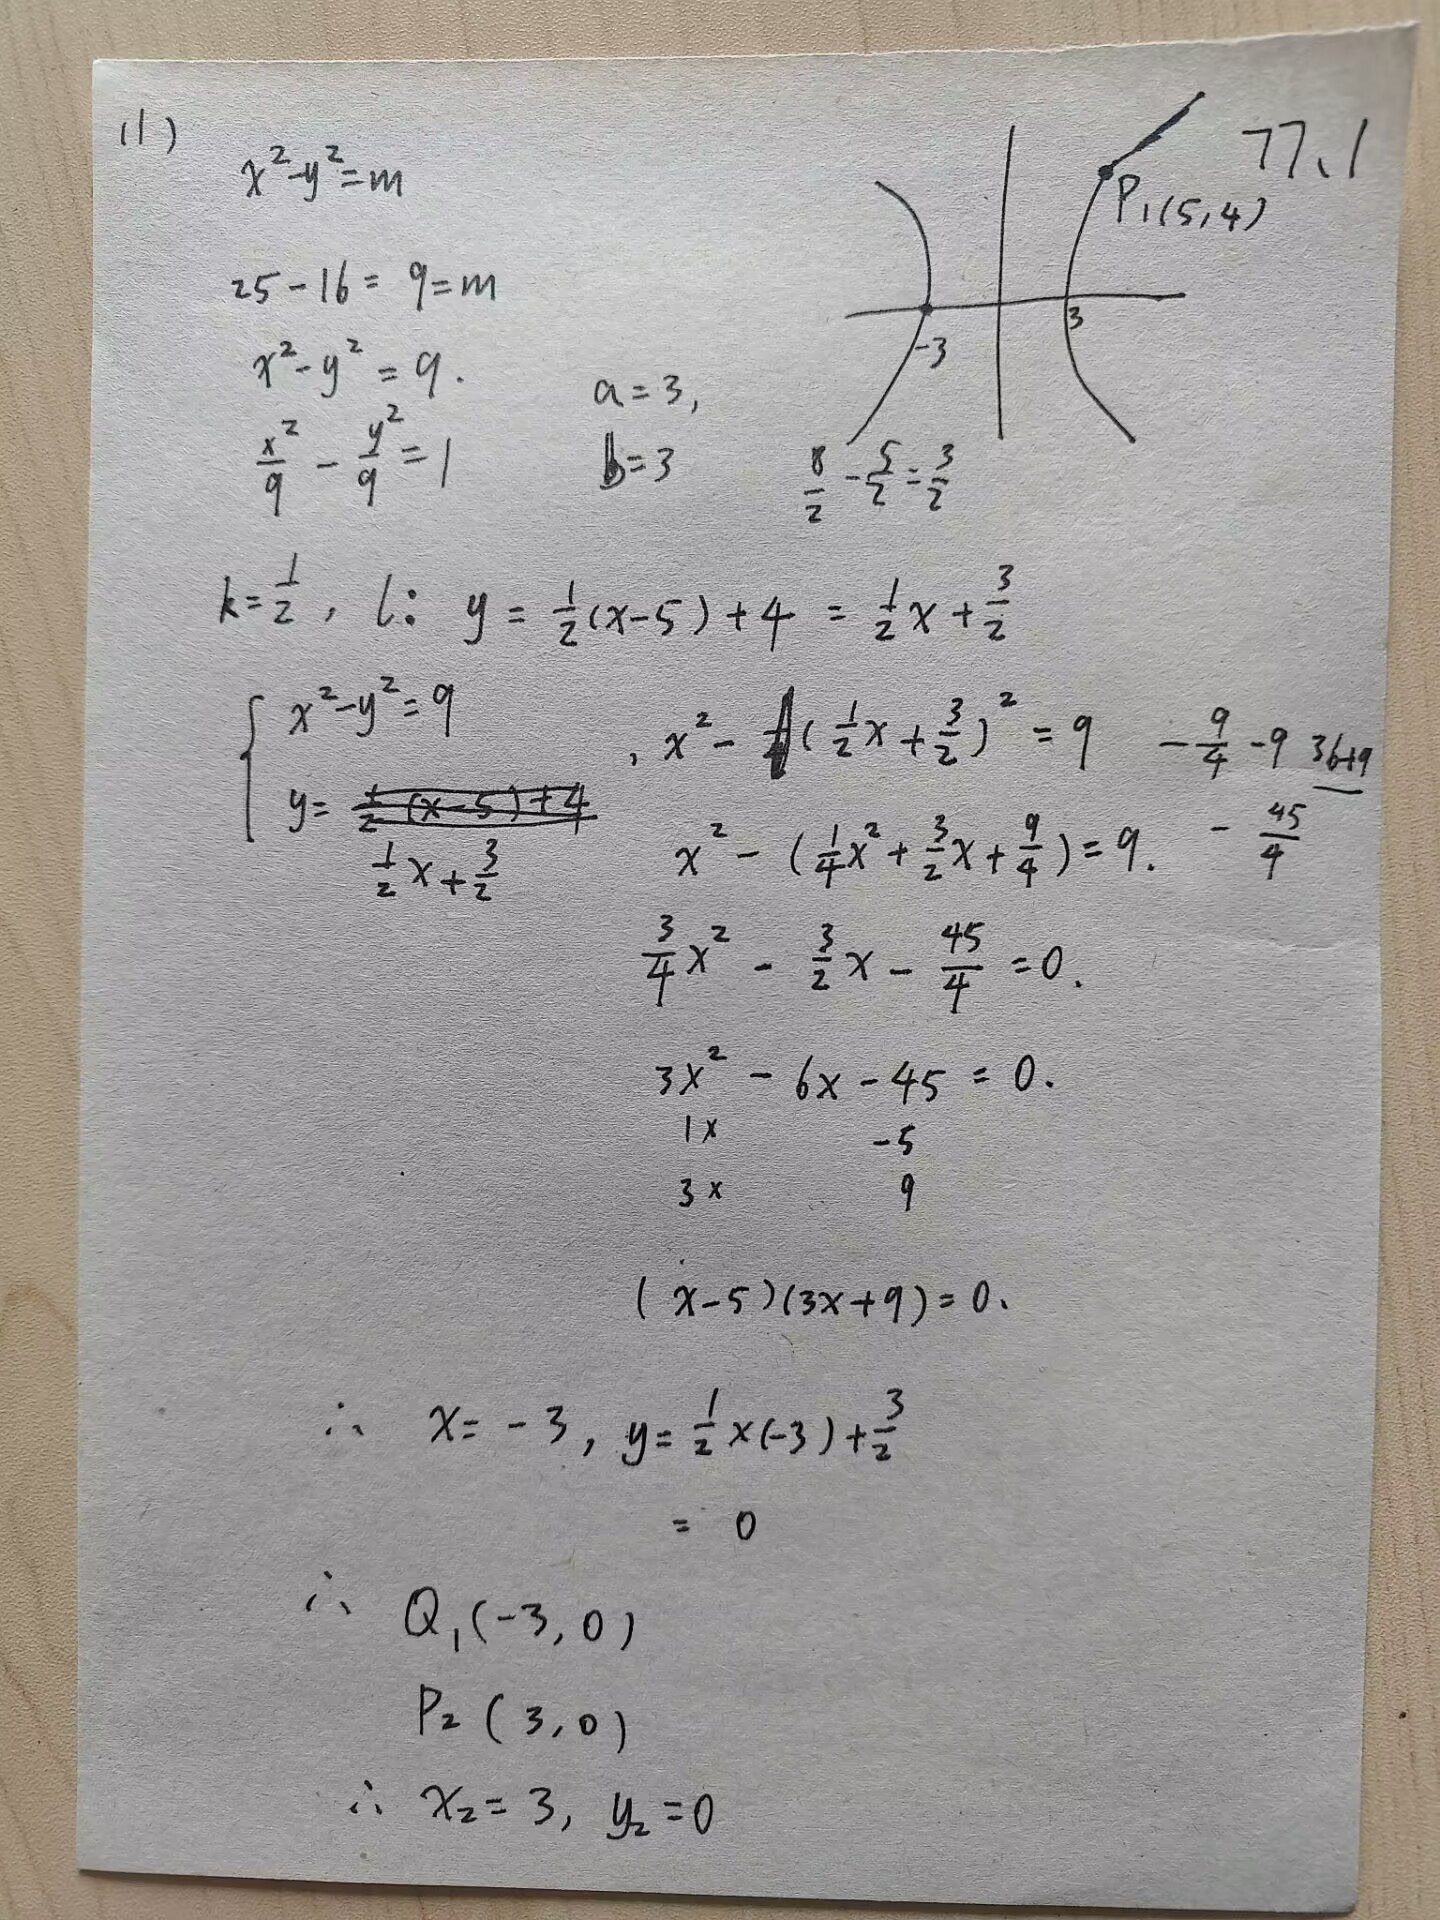 (1)
77、1
x²-y²=m
P₁(5,4)
25-16=9=m
3
-3
x²-y²=9.
a=3,
x²/9-y²/9=1
b=3
8/2-5/2=3/2
k=1/2, l: y=1/2(x-5)+4=1/2x+3/2
{x²-y²=9
y=1/2(x-5)+4
1/2x+3/2
, x²-(1/2x+3/2)²=9
-9/4-9 36+9
-45/4
x²-(1/4x²+3/2x+9/4)=9.
3/4x²-3/2x-45/4=0.
3x²-6x-45=0.
1x -5
3x 9
(x-5)(3x+9)=0.
∴ x=-3, y=1/2×(-3)+3/2
=0
∴ Q₁(-3,0)
P₂(3,0)
∴ x₂=3, y₂=0